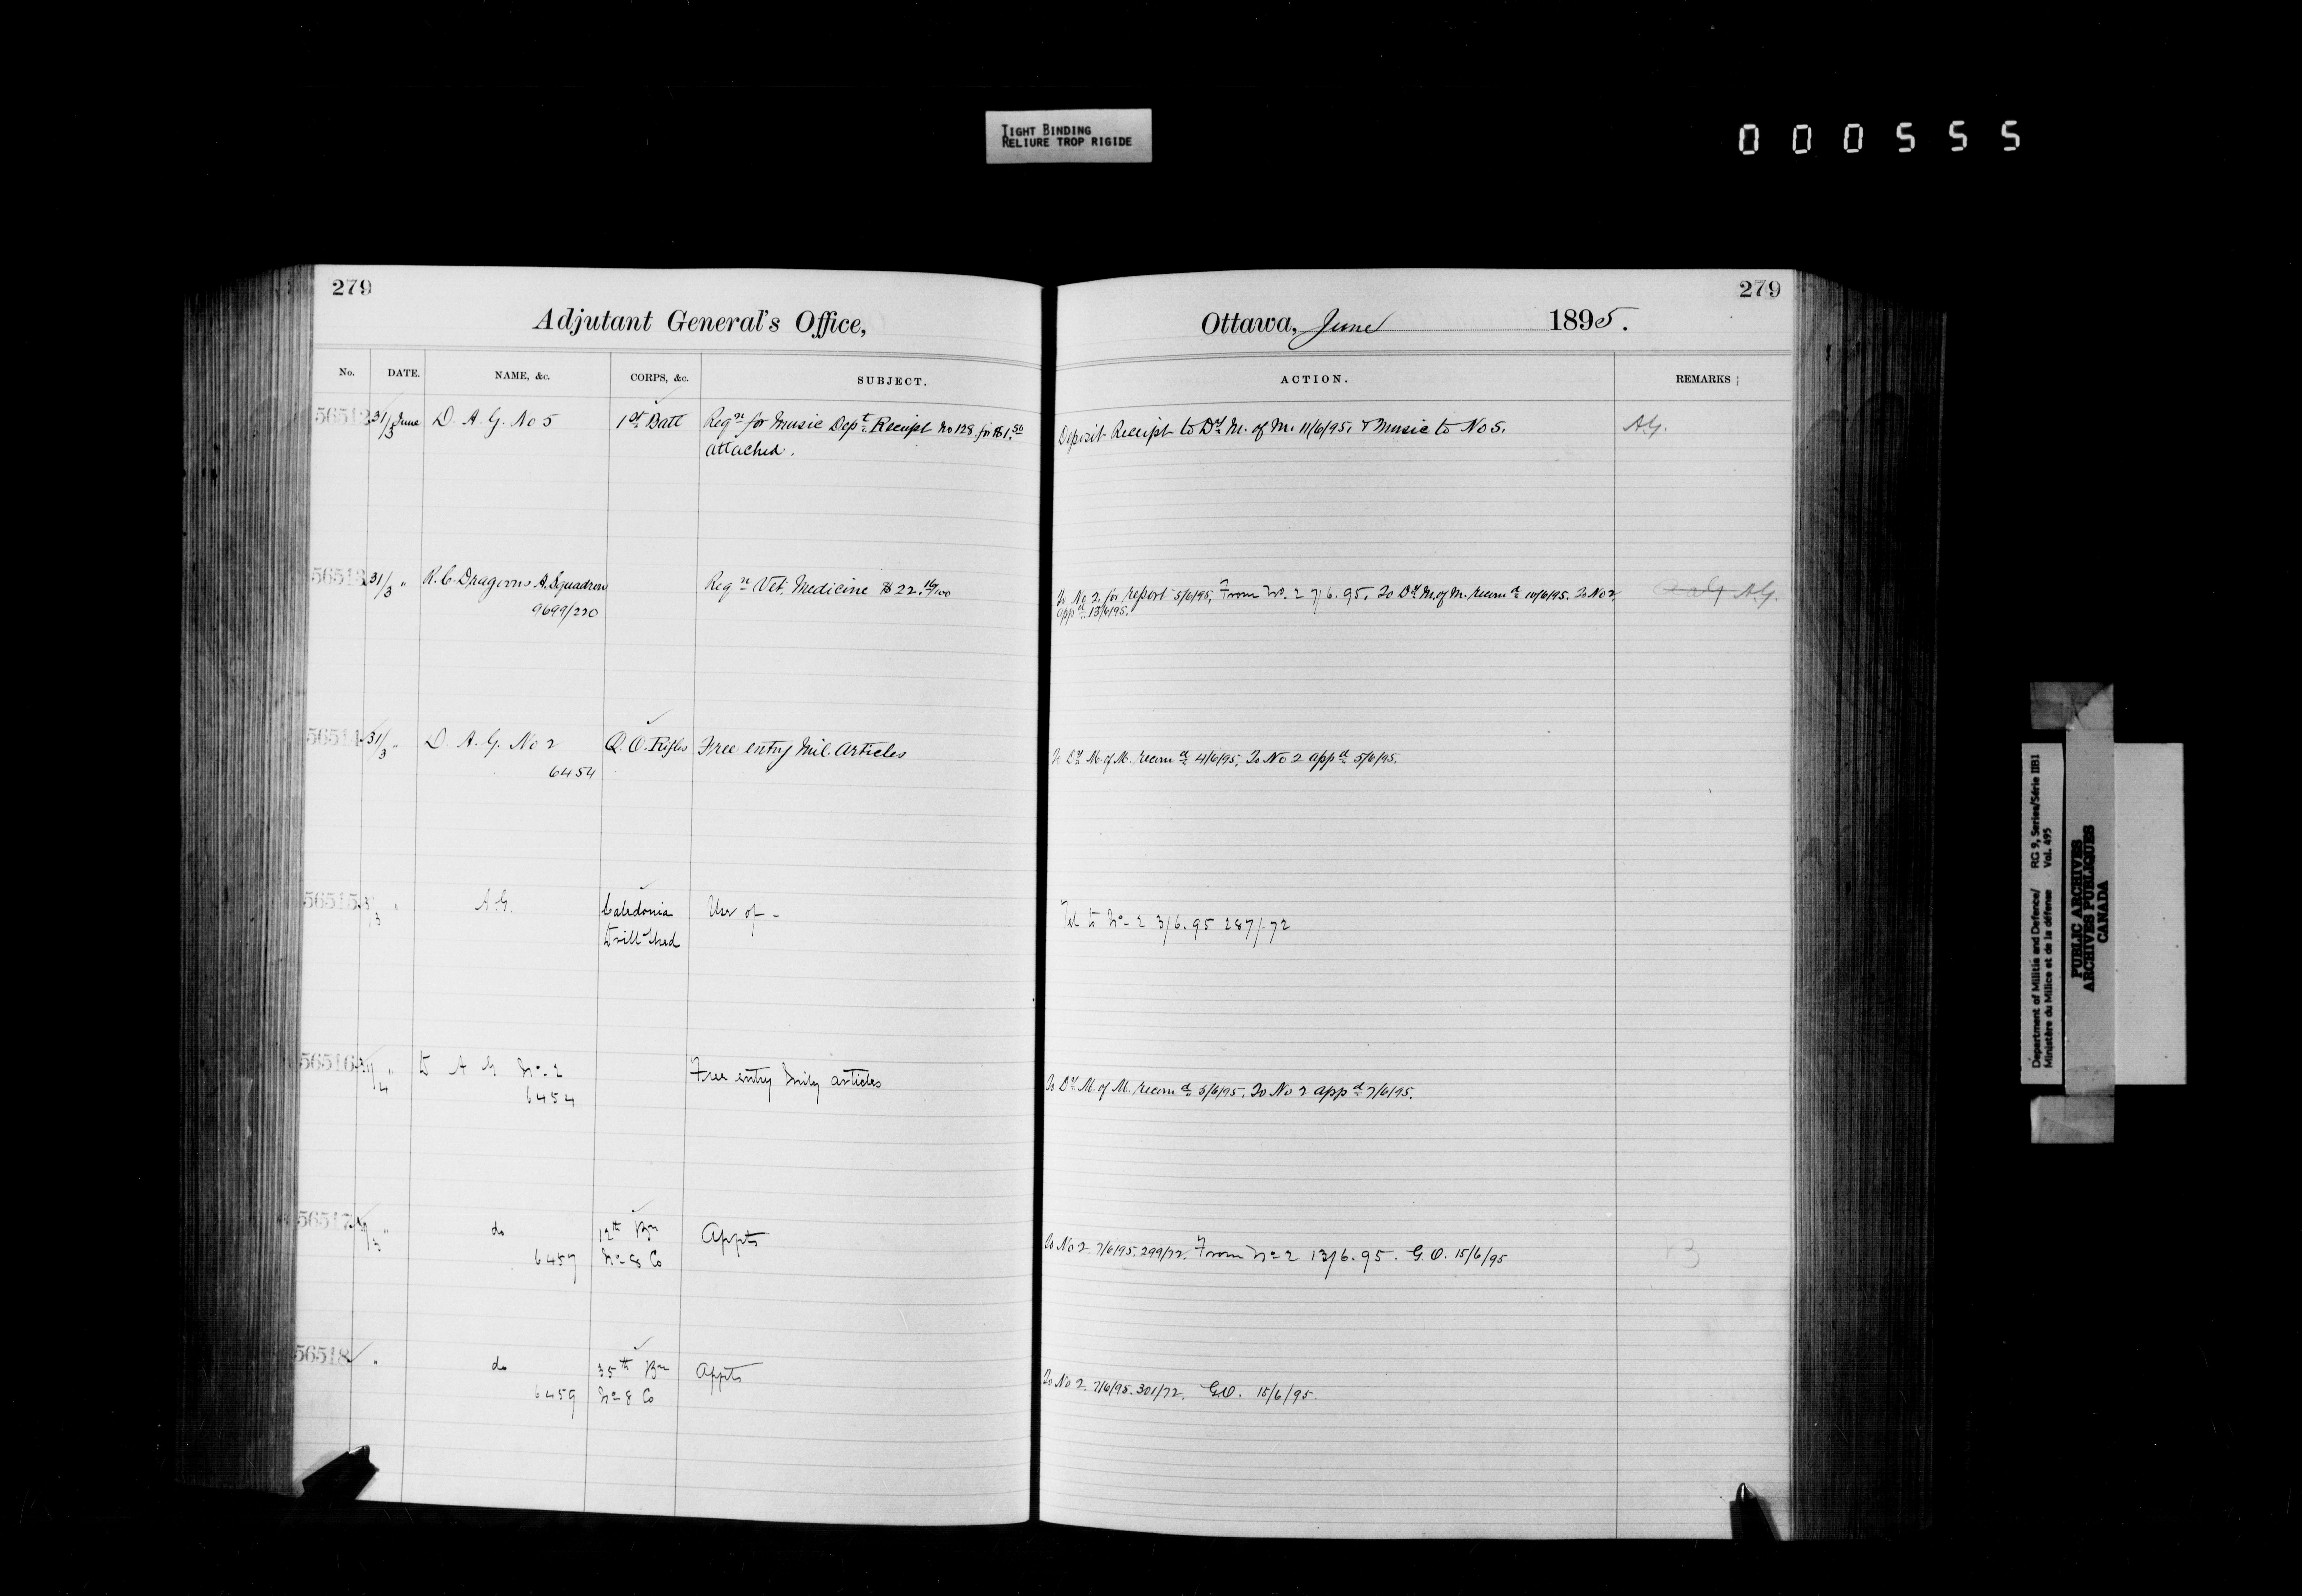 TIGHT BINDING
RELIURE TROP RIGIDE
000555
279
Adjutant General's Office,
No. DATE. NAME, &c. CORPS, &c. SUBJECT.
56512 31/3 June D. A. G. No 5 1st Batt Reqn for Music Dept Receipt No 128 for $1.50
attached.
56513 31/3 " R. C. Dragoons A. Squadron Reqn Vet. Medicine $22.16/100
9699/220
56514 31/3 " D. A. G. No 2 Q. O. Rifles Free entry Mil. Articles
6454
56515 " A G. Caledonia Use of -
Drill Shed
56516 " D A G No 2 Free entry Mily articles
6454
56517 " do 12th Bn Appts
6457 No 8 Co
56518 do 35th Bn Appts
6459 No 8 Co
279
Ottawa, June 1895.
ACTION. REMARKS
Deposit Receipt to Dy M. of M. 11/6/95. & Music to No 5. A.G.
To No 2. for report 5/6/95. From No. 2 7/6.95. To Dy M. of M. recomd 10/6/95. To No 2. A.G.
appd 13/6/95.
To Dy M. of M. recomd 4/6/95. To No 2 appd 5/6/95.
Tel to No 2 3/6.95 287/72
To Dy M. of M. recomd 5/6/95. To No 2 appd 7/6/95.
To No 2. 7/6/95. 299/72. From No 2 13/6.95. G.O. 15/6/95 B
To No 2. 7/6/95. 301/72. G.O. 15/6/95.
Department of Militia and Defence/ RG 9, Series/Série IIB1
Ministère du Milice et de la défense Vol. 495
PUBLIC ARCHIVES
ARCHIVES PUBLIQUES
CANADA